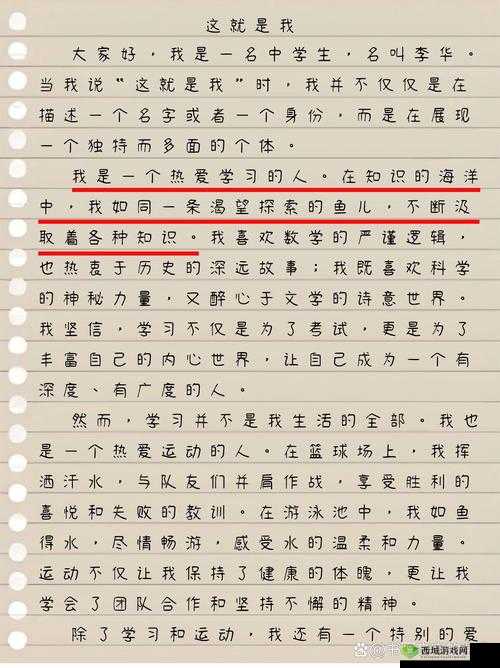 这就是我
大家好，我是一名中学生，名叫李华。
当我说“这就是我”时，我并不仅仅是在
描述一个名字或者一个身份，而是在展现
一个独特而多面的个体。
我是一个热爱学习的人。在知识的海洋
中，我如同一条渴望探索的鱼儿，不断汲
取着各种知识。我喜欢数学的严谨逻辑，
也热衷于历史的深远故事；我既喜欢科学
的神秘力量，又醉心于文学的诗意世界。
我坚信，学习不仅是为了考试，更是为了
丰富自己的内心世界，让自己成为一个有
深度、有广度的人。
然而，学习并不是我生活的全部。我也
是一个热爱运动的人。在篮球场上，我挥
洒汗水，与队友们并肩作战，享受胜利的
喜悦和失败的教训。在游泳池中，我如鱼
得水，尽情畅游，感受水的温柔和力量。
运动不仅让我保持了健康的体魄，更让我
学会了团队合作和坚持不懈的精神。
除了学习和运动，我还有一个特别的爱
西城游戏网